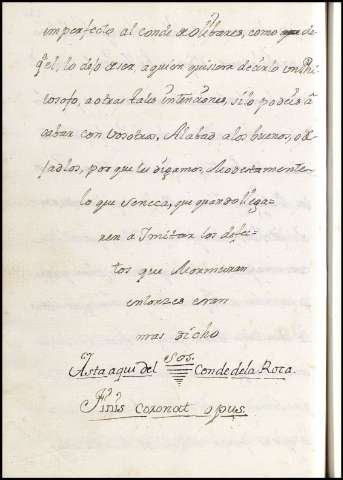 imperfecto al conde de olibares, como que de
q̃ el, lo dejo de ser, a quien quisiera decirlo un Phi
losofo, a otras tales intenciones, si lo podeis a
cabar con vosotros, Alabad a los buenos,
por que les digamos, Modestamente
lo que Seneca, que quando llega-
ren a Imitar los defec-
tos que Murmuran
entonzes eran
mas dicho
Asta aqui del Sos. Conde de la Roca.
Finis coronat opus.